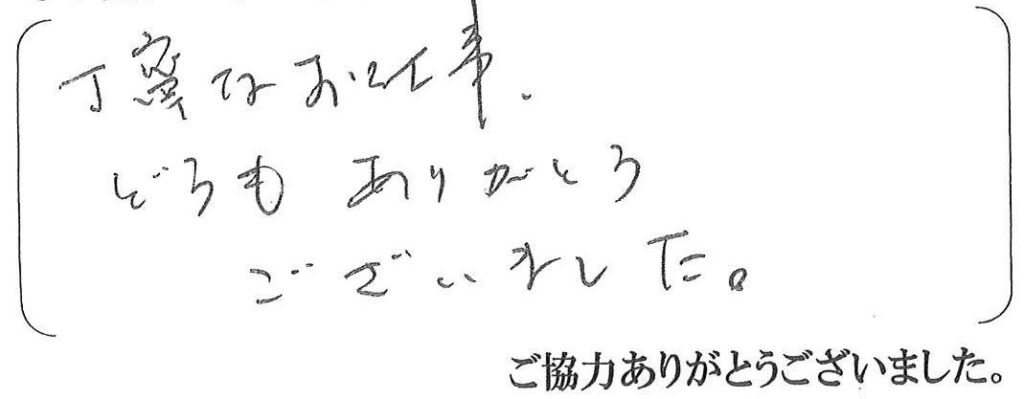 丁寧なお仕事、
どうもありがとう
ございました。
ご協力ありがとうございました。